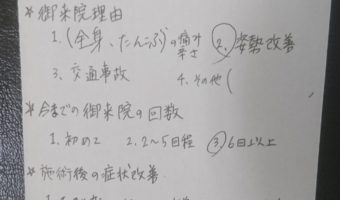 *御来院理由
1.(全身、たんぶ)の痛み 辛さ ②.姿勢改善
3、交通事故 4.その他(
*今までの御来院の回数
1.初めて 2.2〜5日程 ③6日以上
*施術後の症状改善